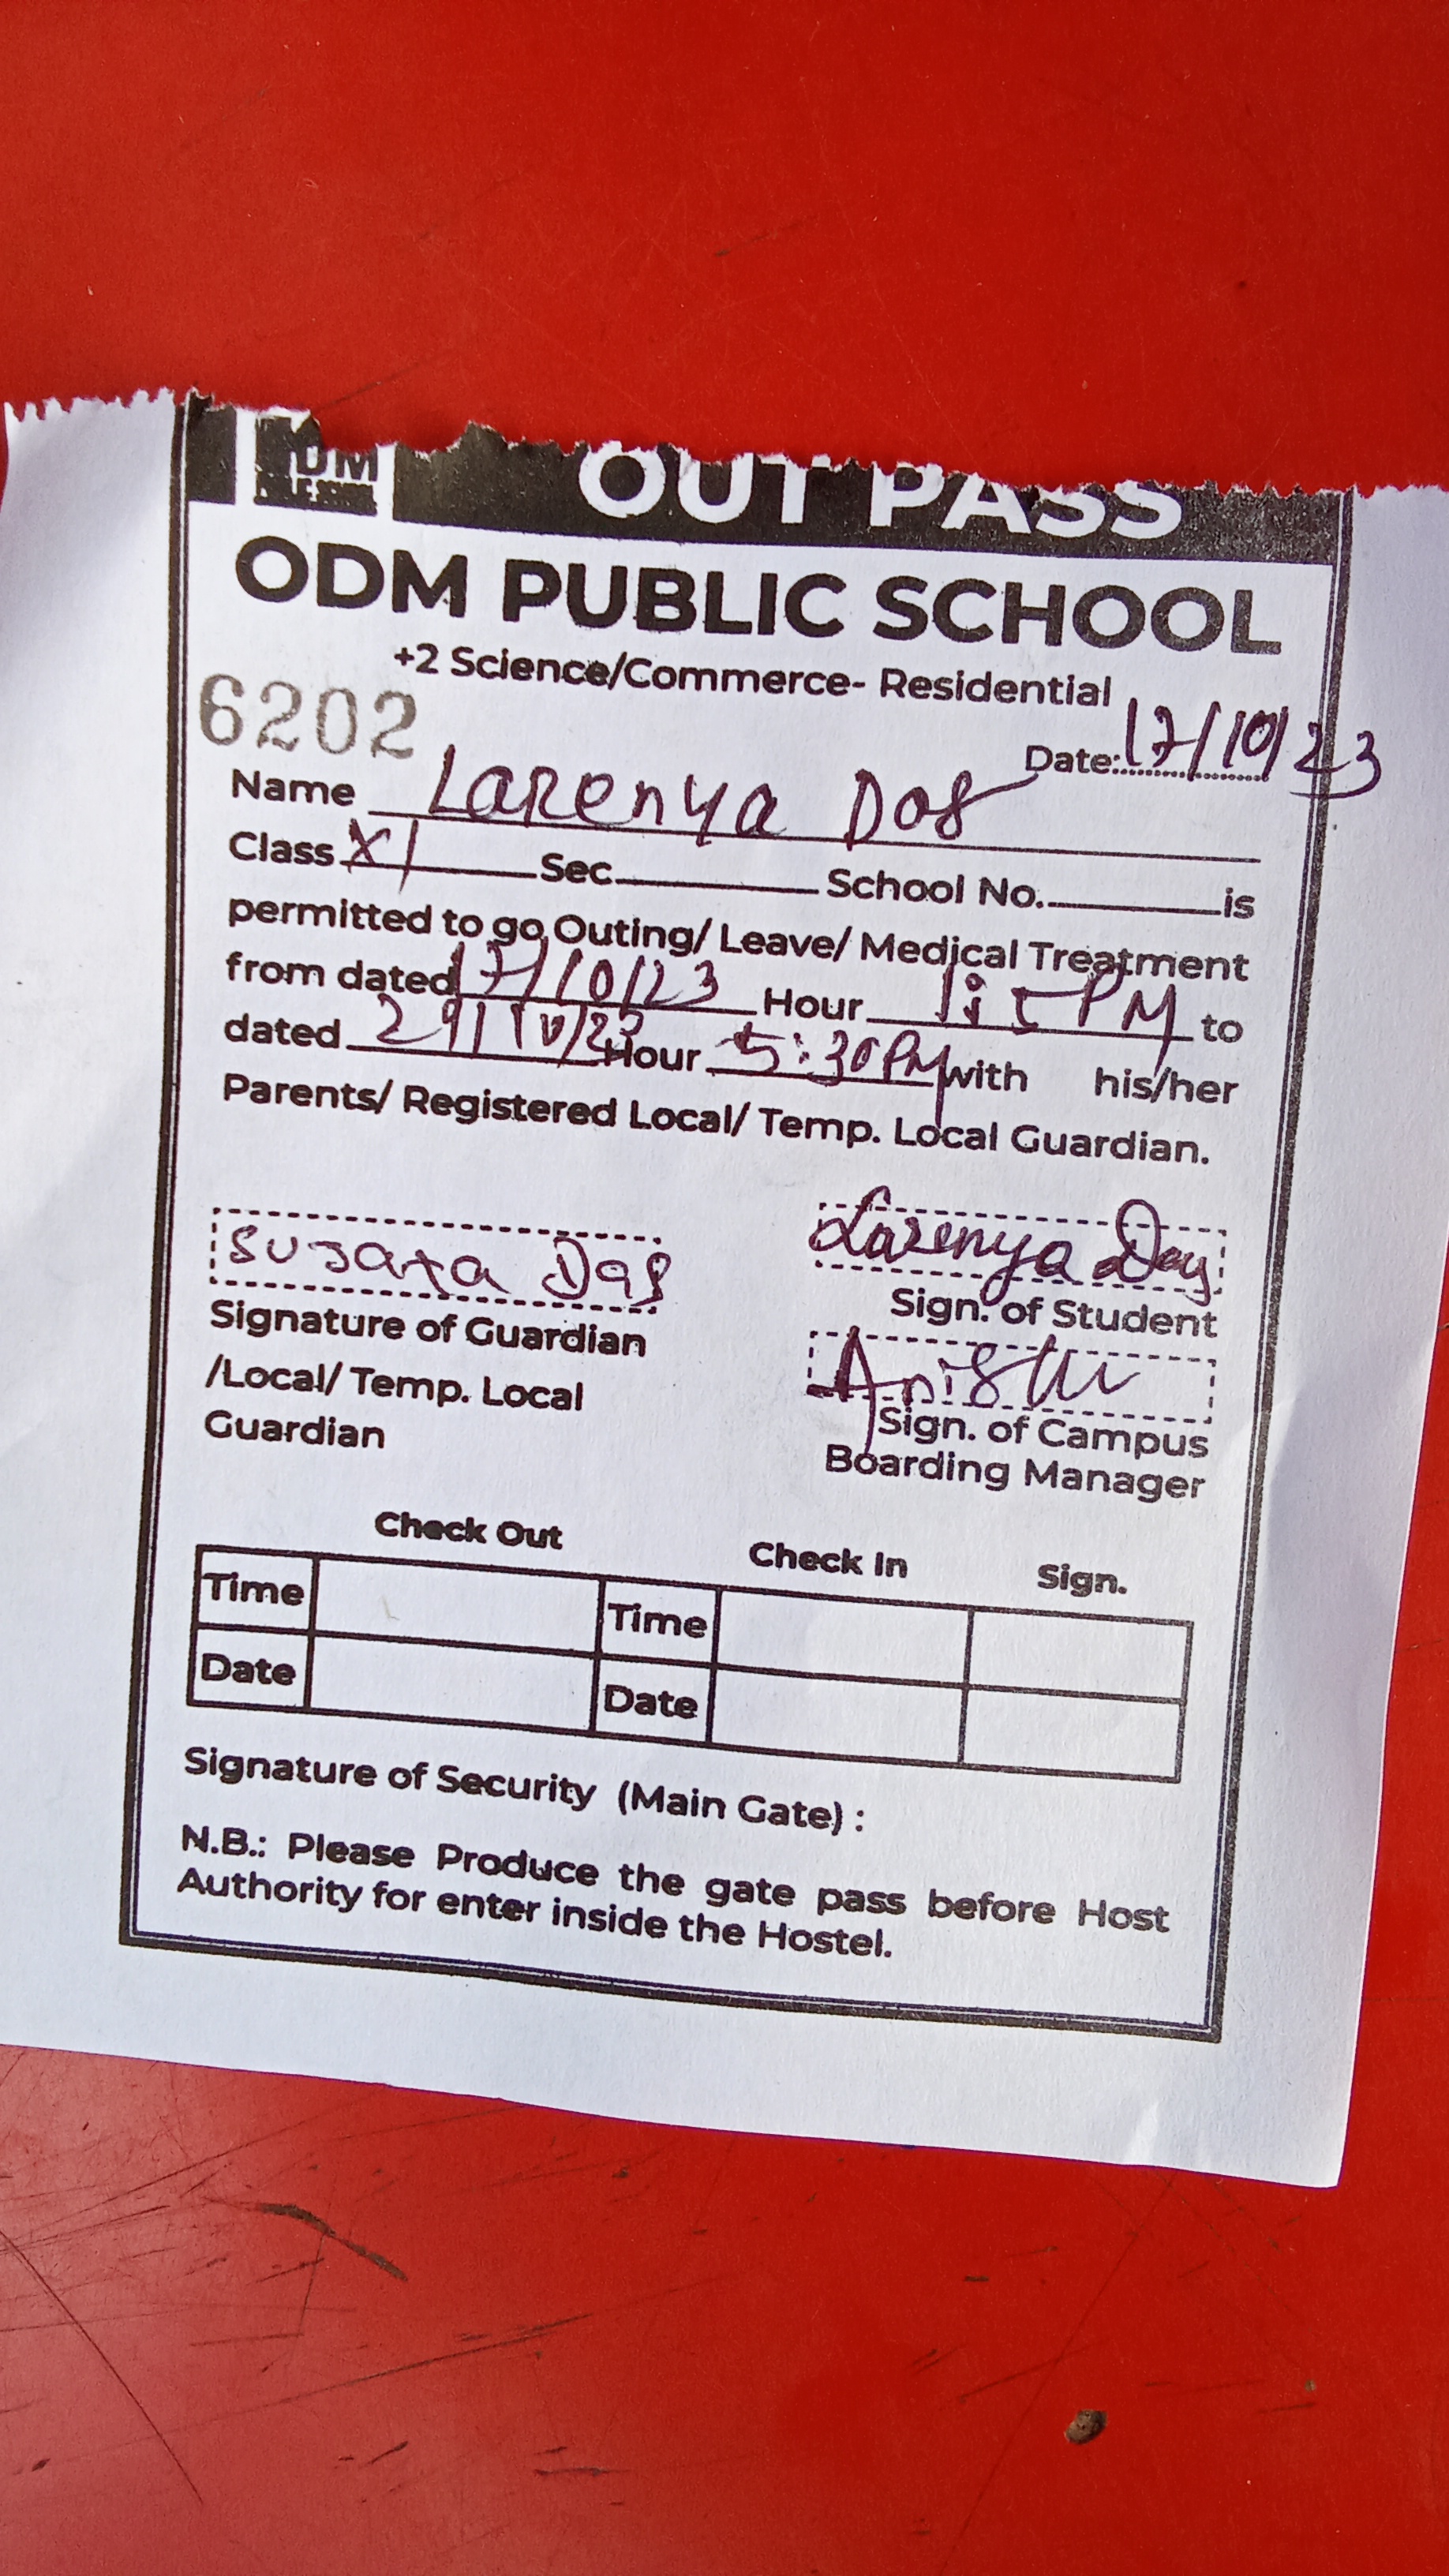 ODM
PUBLIC SCHOOL
OUT PASS
ODM PUBLIC SCHOOL
+2 Science/Commerce- Residential
6202
Date: 17/10/23
Name Larenya Das
Class XI Sec. School No. is
permitted to go Outing/ Leave/ Medical Treatment
from dated 17/10/23 Hour PM to
dated 29/10/23 Hour 5:30 PM with his/her
Parents/ Registered Local/ Temp. Local Guardian.
Sujata Das
Larenya Das
Signature of Guardian
/Local/ Temp. Local
Guardian
Sign. of Student
Sign. of Campus
Boarding Manager
Check Out Check In Sign.
Time Time
Date Date
Signature of Security (Main Gate) :
N.B.: Please Produce the gate pass before Host
Authority for enter inside the Hostel.